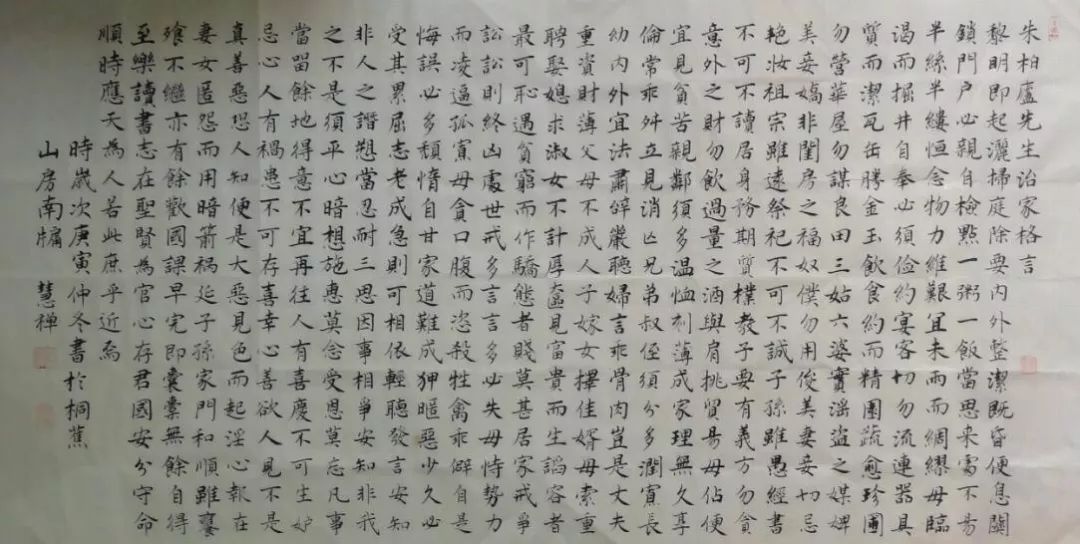 朱柏廬先生治家格言
黎明即起灑掃庭除要內外整潔既昏便息關
鎖門户必親自檢點一粥一飯當思来處不易
半絲半縷恒念物力維艱宜未雨而綢繆毋臨
渴而掘井自奉必須儉約宴客切勿流連器具
質而潔瓦缶勝金玉飲食約而精園蔬愈珍
勿營華屋勿謀良田三姑六婆實淫盜之媒婢
美妾嬌非閨房之福奴僕勿用俊美妻妾切忌
艳妝祖宗雖遠祭祀不可不誠子孫雖愚經書
不可不讀居身務期質樸教子要有義方勿貪
意外之財勿飲過量之酒與肩挑貿易毋佔便
宜見貧苦親鄰須多温恤刻薄成家理無久享
倫常乖舛立見消亡兄弟叔侄須分多潤寡長
幼內外宜法肅辭嚴聽婦言乖骨肉豈是丈夫
重資財薄父母不成人子嫁女擇佳婿毋索重
聘娶媳求淑女不計厚奩見富貴而生諂容者
最可恥遇貧窮而作驕態者賤莫甚居家戒爭
訟訟則終凶處世戒多言言多必失毋恃勢力
而凌逼孤寡毋貪口腹而恣殺牲禽乖僻自是
悔誤必多頹惰自甘家道難成狎暱惡少久必
受其累屈志老成急則可相依輕聽發言安知
非人之譖愬當忍耐三思因事相爭安知非我
之不是須平心暗想施惠莫念受恩莫忘凡事
當留餘地得意不宜再往人有喜慶不可生妒
忌心人有禍患不可存喜幸心善欲人見不是
真善惡恐人知便是大惡見色而起淫心報在
妻女匿怨而用暗箭禍延子孫家門和順雖饔
飧不繼亦有餘歡國課早完即囊橐無餘自得
至樂讀書志在聖賢為官心存君國安分守命
順時應天為人若此庶乎近焉
時歲次庚寅仲冬書於桐蕉
山房南牖 慧禅